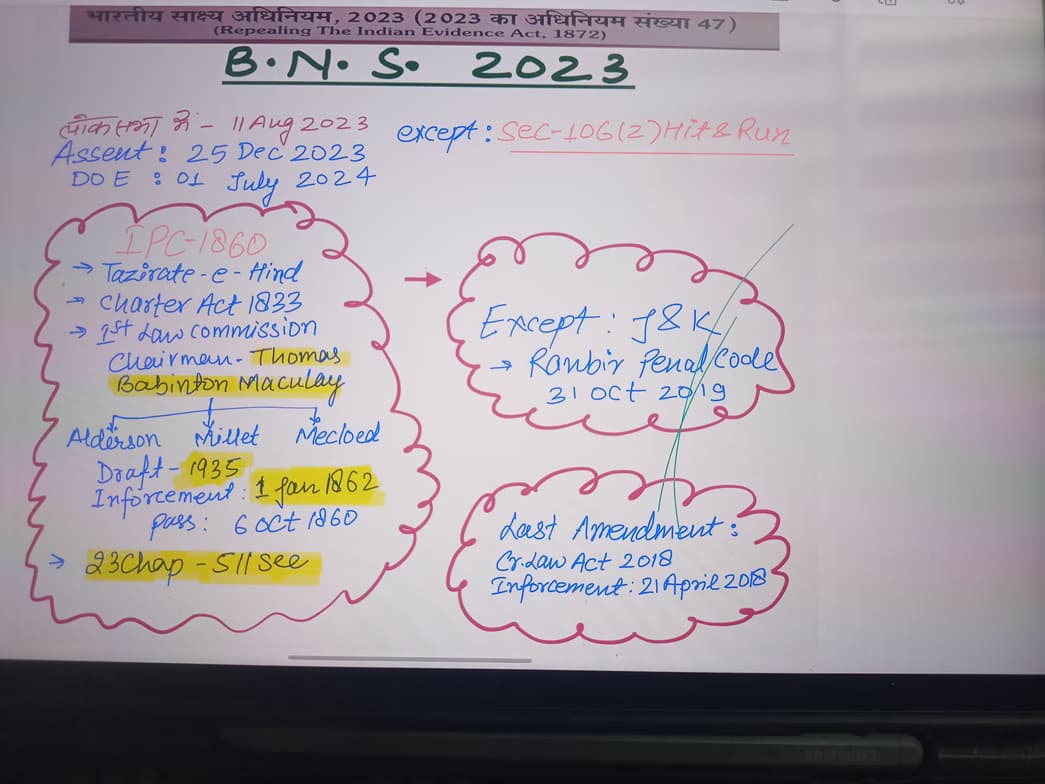 भारतीय साक्ष्य अधिनियम, 2023 (2023 का अधिनियम संख्या 47)
(Repealing The Indian Evidence Act, 1872)
B.N.S. 2023
लोकसभा में - 11 Aug 2023
Assent : 25 Dec 2023
DOE : 01 July 2024
except : Sec-106(2) Hit & Run
IPC-1860
→ Tazirate-e-Hind
→ Charter Act 1833
→ 1st Law commission
Chairman - Thomas
Babinton Maculay
Alderson Millet Mecloed
Draft - 1935
Inforcement : 1 Jan 1862
pass : 6 oct 1860
→ 23 Chap - 511 See
→
Except : J & K
→ Ranbir Penal Code
31 oct 2019
Last Amendment :
Cr. Law Act 2018
Inforcement : 21 April 2018
SAMSUNG